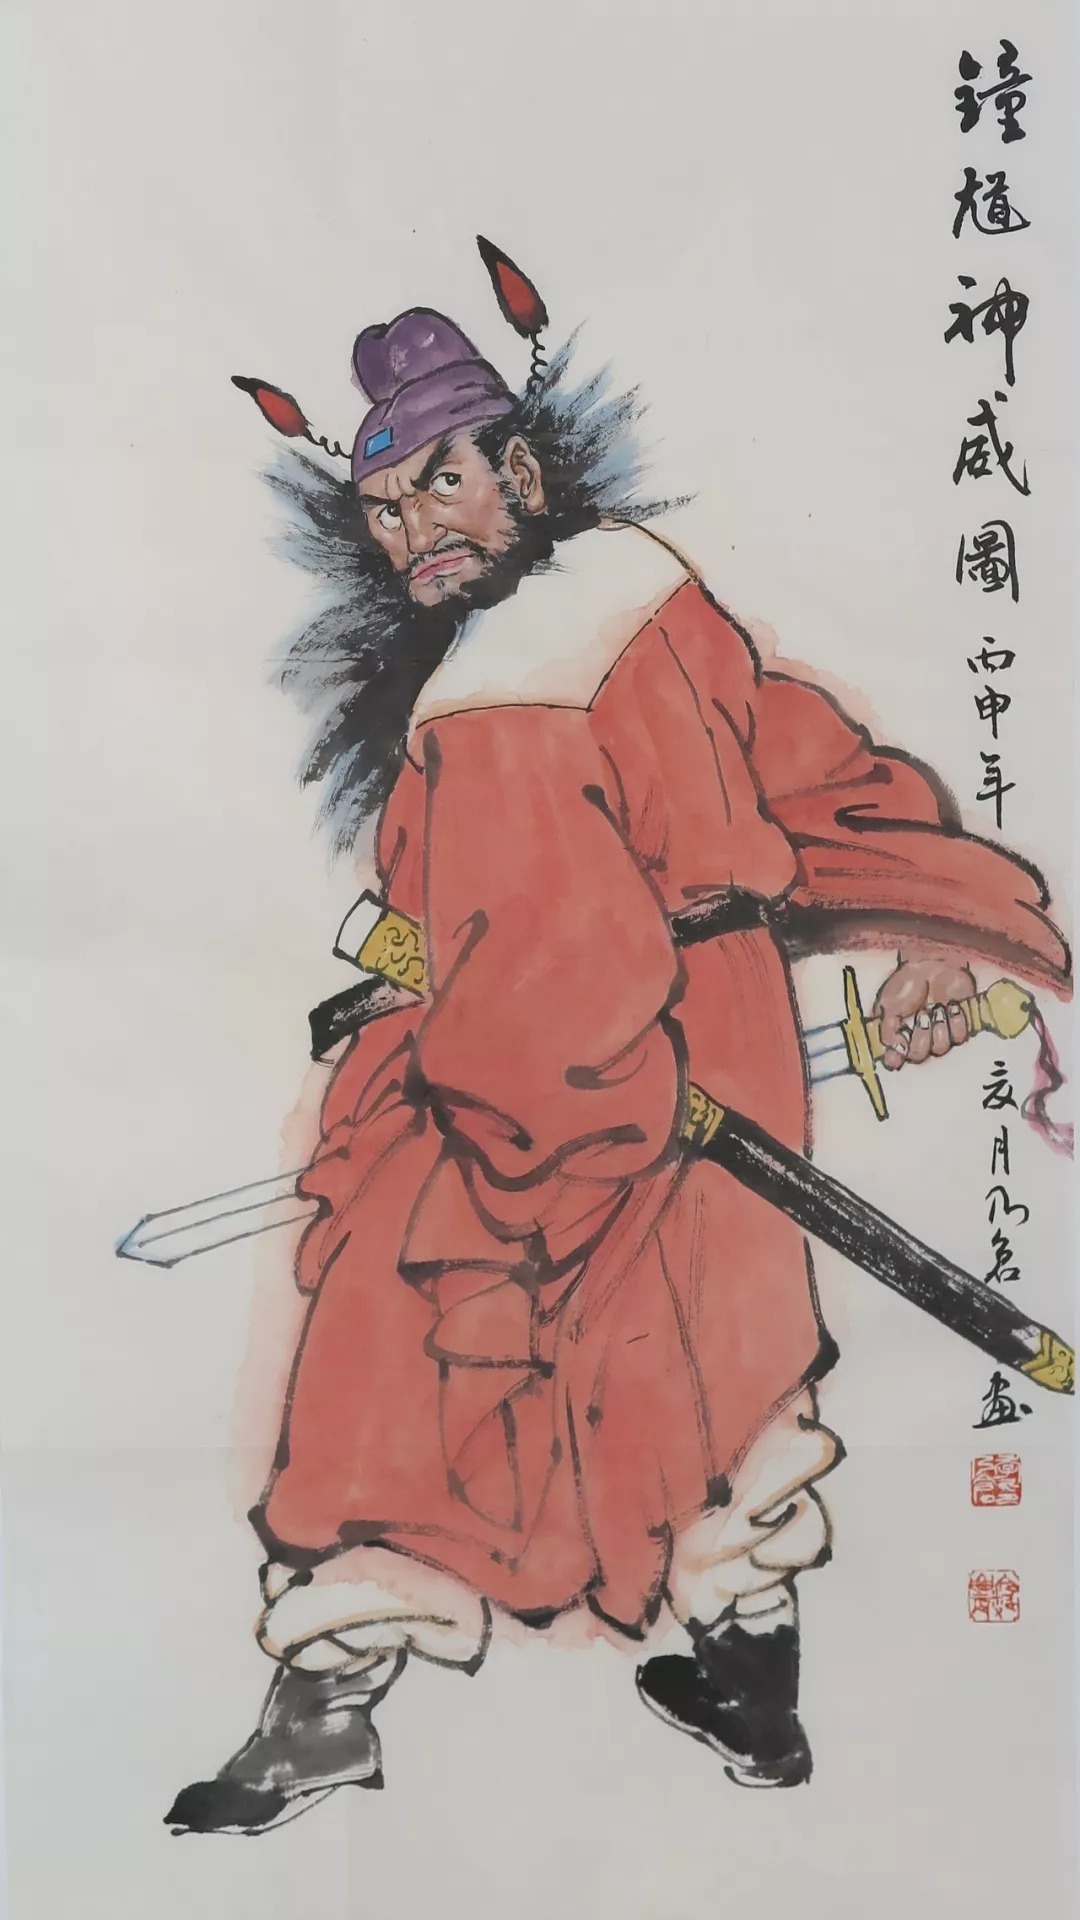 鐘馗神威圖丙申年亥月乃名画